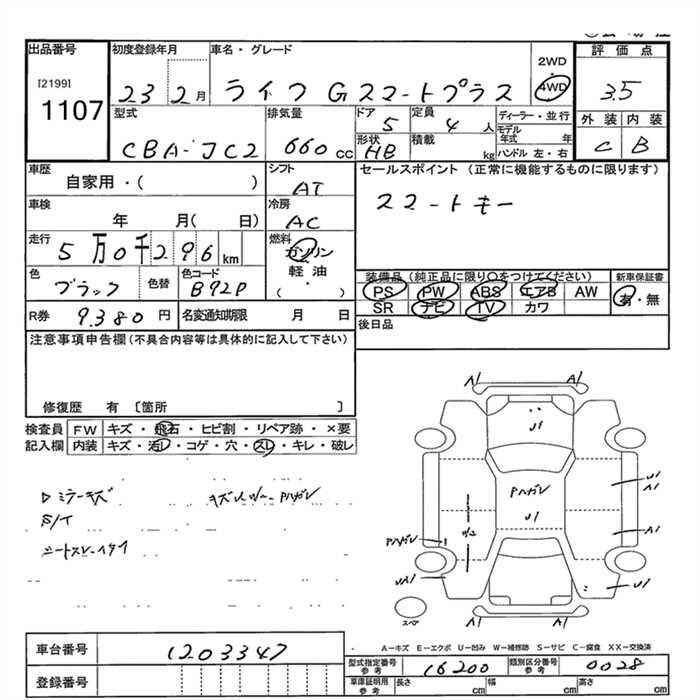 出品番号
[2199]
1107
初度登録年月
23 2月
車名・グレード
ライフ Gスマートプラス
2WD
4WD
評価点
3.5
型式
CBA-JC2
排気量
660cc
ドア
5
定員
4人
ディーラー・並行
モデル
年式 年
形状
HB
積載
kg
ハンドル 左・右
外装 内装
C B
車歴
自家用・( )
シフト
AT
セールスポイント (正常に機能するものに限ります)
スマートキー
車検
年 月( 日)
冷房
AC
走行
5万0千296km
燃料
ガソリン
軽油
( ・ )
色
ブラック
色替
色コード
B92P
装備品(純正品に限り○をつけてください)
PS PW ABS エアB AW
SR ナビ TV カワ
新車保証書
有・無
R券
9,380円
名変通知期限 月 日
後日品
注意事項申告欄(不具合内容等は具体的に記入して下さい)
修復歴 有 〔箇所 〕
検査員
記入欄
FW キズ・飛石・ヒビ割・リペア跡・×要
内装 キズ・汚レ・コゲ・穴・スレ・キレ・破レ
Dミラーキズ
S/イ
A1 A1
U1
Pハガレ
U1
U1
A1
A1
Pハガレ
W2
UA1
U1
スペア
A－キズ E－エクボ U－凹み W－補修跡 S－サビ C－腐食 XX－交換済
車台番号
1203347
登録番号
型式指定番号
参考
16200
類別区分番号
参考
0028
車庫証明用
参考
長さ cm
幅 cm
高さ cm